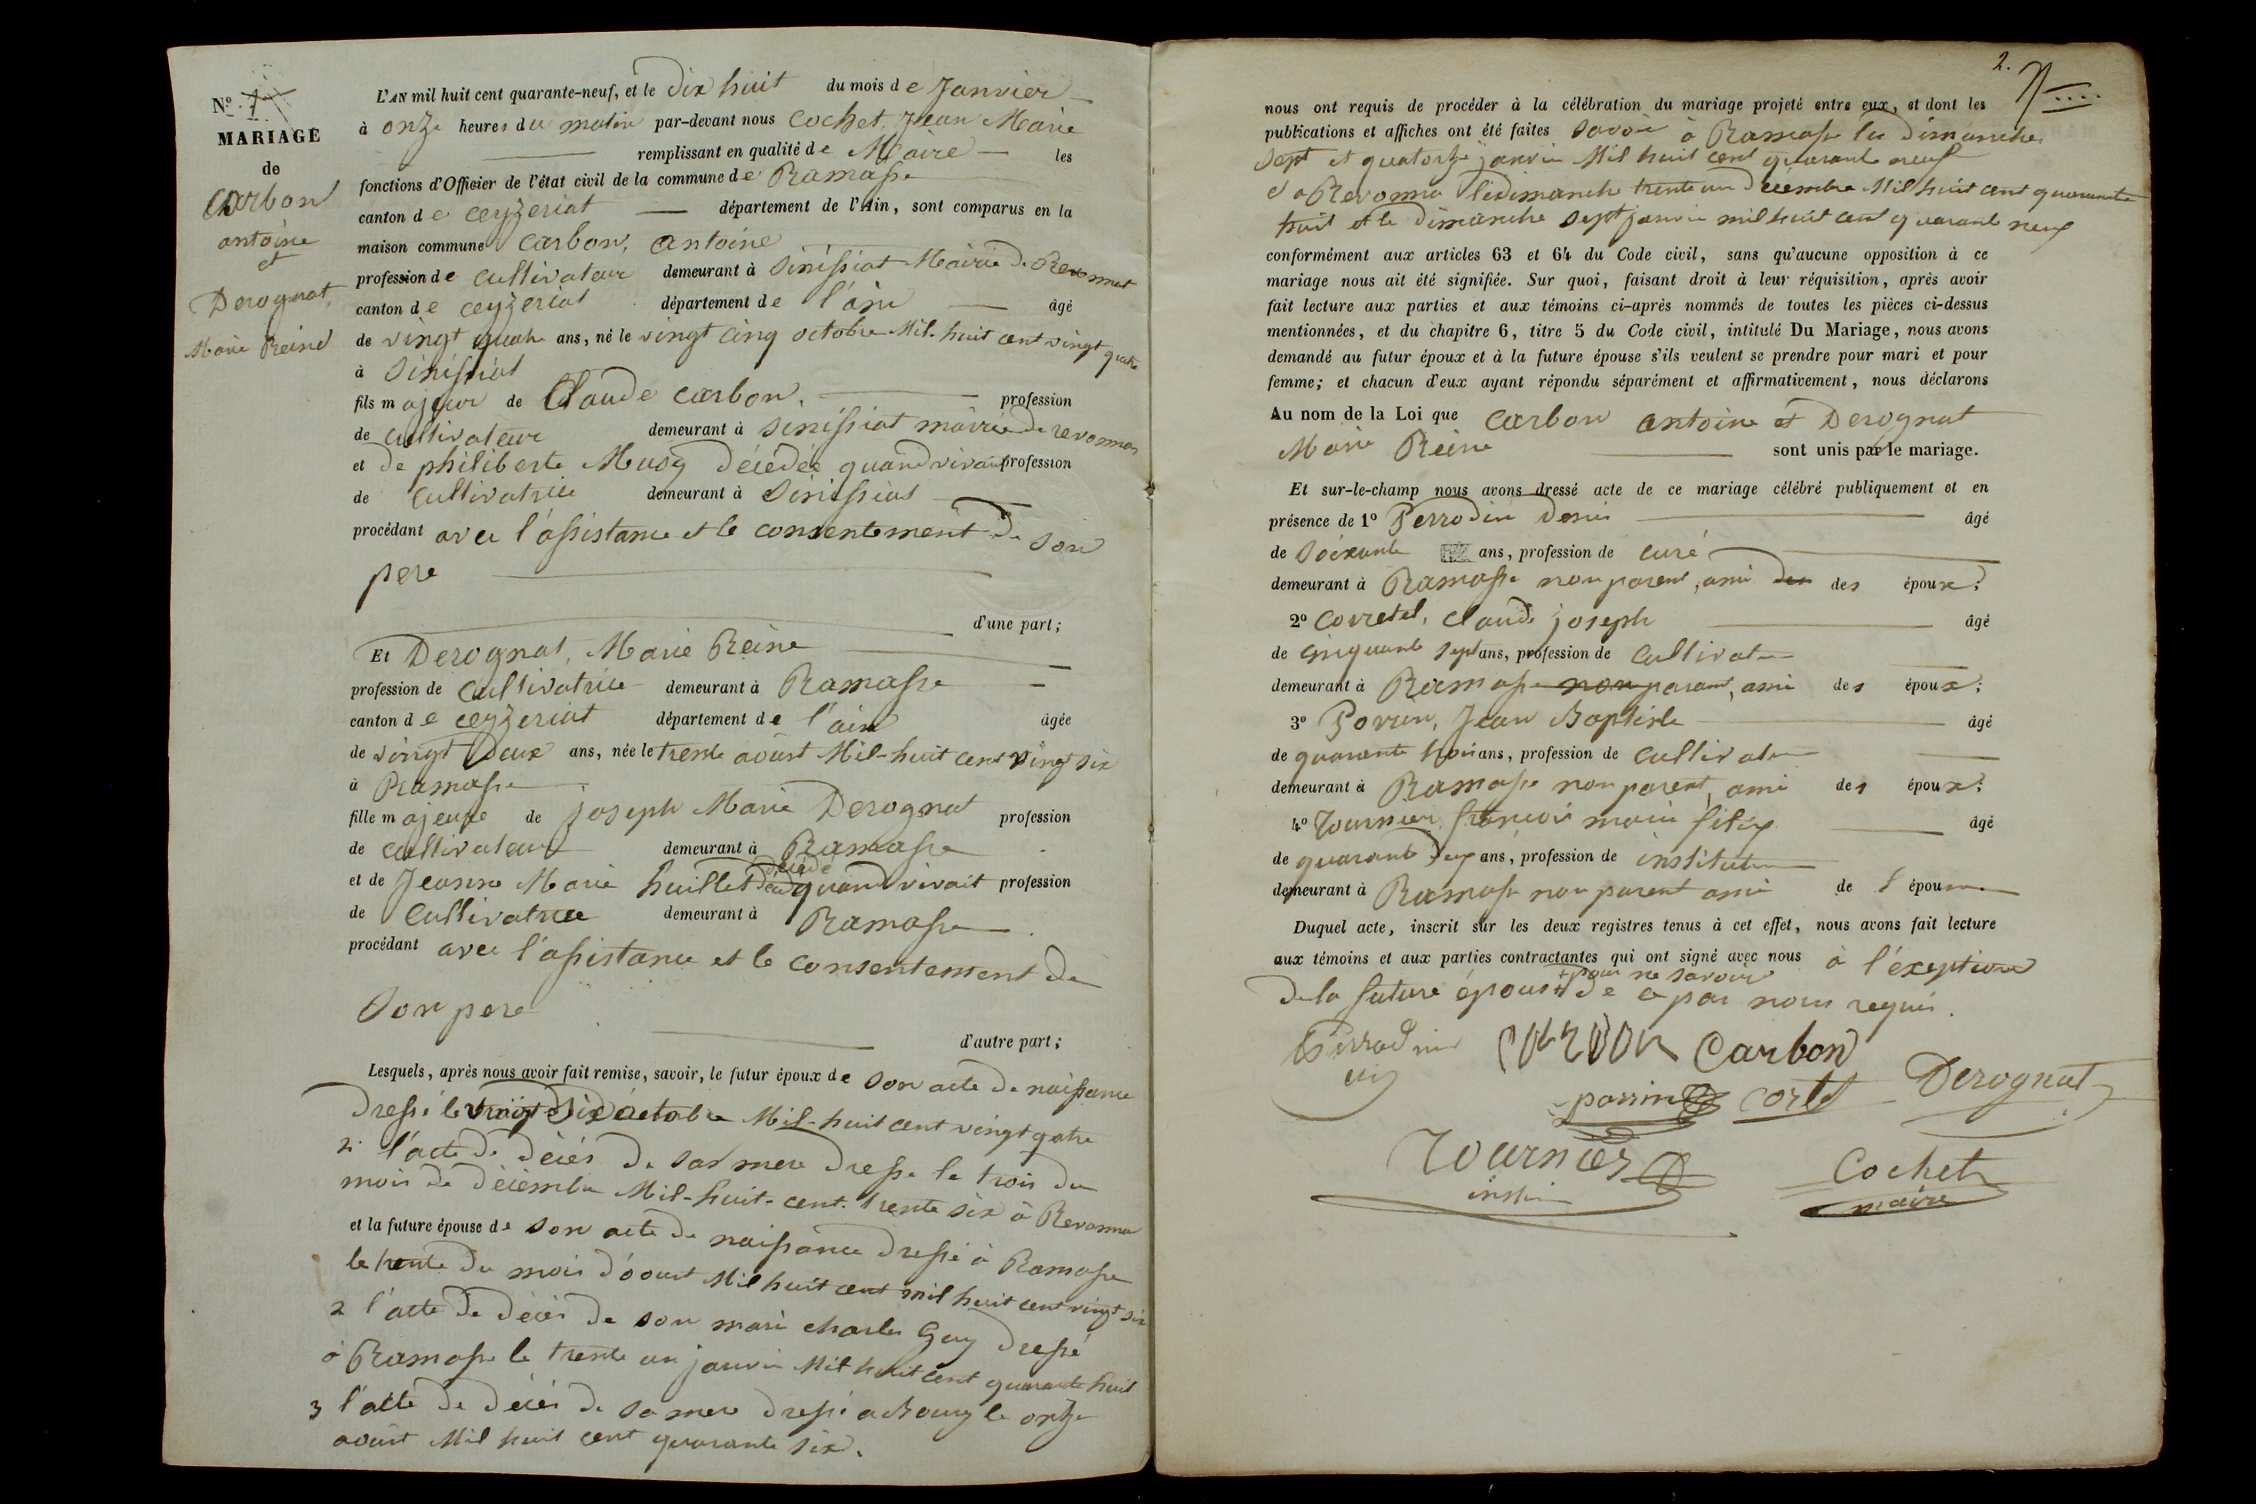 N.º 1
MARIAGE
de
Carbon
antoine
et
Derognat,
Marie Reine
L'AN mil huit cent quarante-neuf, et le dix huit du mois de Janvier
à onze heures du matin par-devant nous Cochet, Jean Marie
remplissant en qualité de Maire les
fonctions d'Officier de l'état civil de la commune de Ramasse
canton de ceyzeriat département de l'Ain, sont comparus en la
maison commune Carbon, antoine
profession de cultivateur demeurant à Sinissiat Mairie de Revonnat
canton de ceyzeriat département de l'ain âgé
de vingt quatre ans, né le vingt cinq octobre Mil-huit cent vingt quatre
à Sinissiat
fils majeur de Claude Carbon, profession
de cultivateur demeurant à Sinissiat mairie de revonnas
et de philiberte Muoy décédée quand vivait profession
de cultivatrice demeurant à Sinissiat
procédant avec l'assistance et le consentement de son
pere
d'une part;
Et Derognat, Marie Reine
profession de cultivatrice demeurant à Ramasse
canton de ceyzeriat département de l'ain âgée
de vingt deux ans, née le trente aoust Mil-huit cent vingt six
à Ramasse
fille majeure de joseph Marie Derognat profession
de cultivateur demeurant à Ramasse
et de Jeanne Marie huillet décédé quand vivait profession
de Cultivatrice demeurant à Ramasse
procédant avec l'assistance et le consentement de
Son pere
d'autre part;
Lesquels, après nous avoir fait remise, savoir, le futur époux de son acte de naissance
dressé le vingt six octobre Mil-huit cent vingt qatre
2 l'acte de décés de sa mere dressé le trois du
mois de décembre Mil-huit-cent. trente six à Revonna
et la future épouse de son acte de naissance dressé à Ramasse
le trente du mois d'aoust Mil huit cent mil huit cent vingt six
2 l'acte de décés de son mari charles Guy dressé
à Ramasse le trente un janvier Mil huit cent quarante huit
3 l'acte de décés de sa mere dressé a Bourg le onze
aoust Mil huit cent quarante six.
2.
nous ont requis de procéder à la célébration du mariage projeté entre eux, et dont les
publications et affiches ont été faites savoir à Ramasse les dimanches
sept et quatorze janvier Mil huit cent quarante neuf
et a Revonna le dimanche trente un décembre Mil huit cent quarante
huit et le dimanche sept janvier mil huit cent quarante neuf
conformément aux articles 63 et 64 du Code civil, sans qu'aucune opposition à ce
mariage nous ait été signifiée. Sur quoi, faisant droit à leur réquisition, après avoir
fait lecture aux parties et aux témoins ci-après nommés de toutes les pièces ci-dessus
mentionnées, et du chapitre 6, titre 5 du Code civil, intitulé Du Mariage, nous avons
demandé au futur époux et à la future épouse s'ils veulent se prendre pour mari et pour
femme; et chacun d'eux ayant répondu séparément et affirmativement, nous déclarons
Au nom de la Loi que Carbon antoine et Derognat
Marie Reine sont unis par le mariage.
Et sur-le-champ nous avons dressé acte de ce mariage célébré publiquement et en
présence de 1º Perrodin Denis âgé
de soixante ans, profession de curé
demeurant à Ramasse non parent, ami des époux;
2º Corretel, Claude joseph âgé
de cinquante sept ans, profession de cultivateur
demeurant à Ramasse non parent, ami des époux;
3º Perrin, Jean Baptiste âgé
de quarante trois ans, profession de cultivateur
demeurant à Ramasse non parent, ami des époux;
4º Tournier françois marie félix âgé
de quarante deux ans, profession de instituteur
demeurant à Ramasse non parent ami de l'époux
Duquel acte, inscrit sur les deux registres tenus à cet effet, nous avons fait lecture
aux témoins et aux parties contractantes qui ont signé avec nous à l'exeption
de la future épouse pour ne savoir de ce par nous requis.
Perrodin Carbon Carbon
perrin Derognat
Tournier Cochet
maire